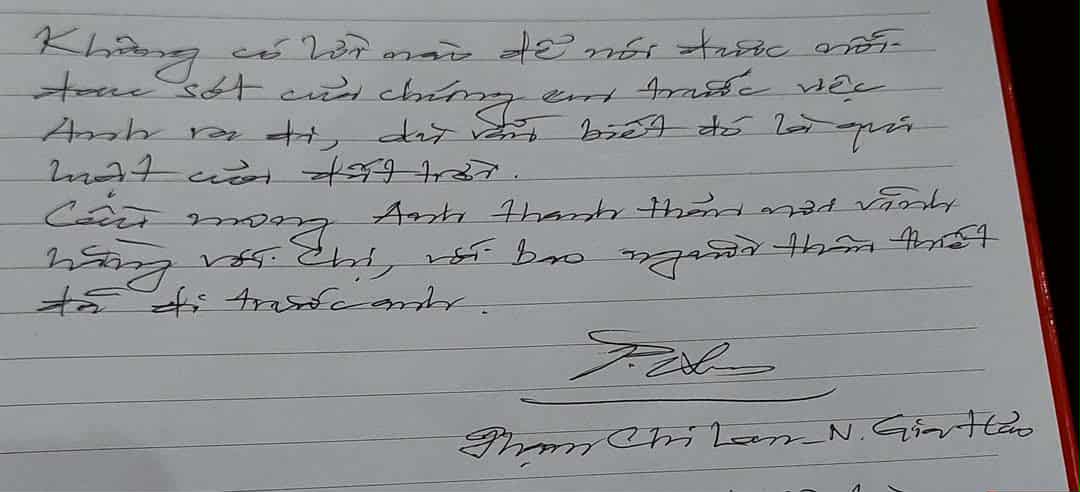 Không có lời nào để nói được nỗi
đau sót của chúng em trước việc
Anh ra đi, dù vẫn biết đó là qui
luật của đất trời.
Cầu mong Anh thanh thản nơi vĩnh
hằng với Chị, với bao người thân thiết
đã đi trước anh.
Phạm Chi Lan - N. Gia Hảo